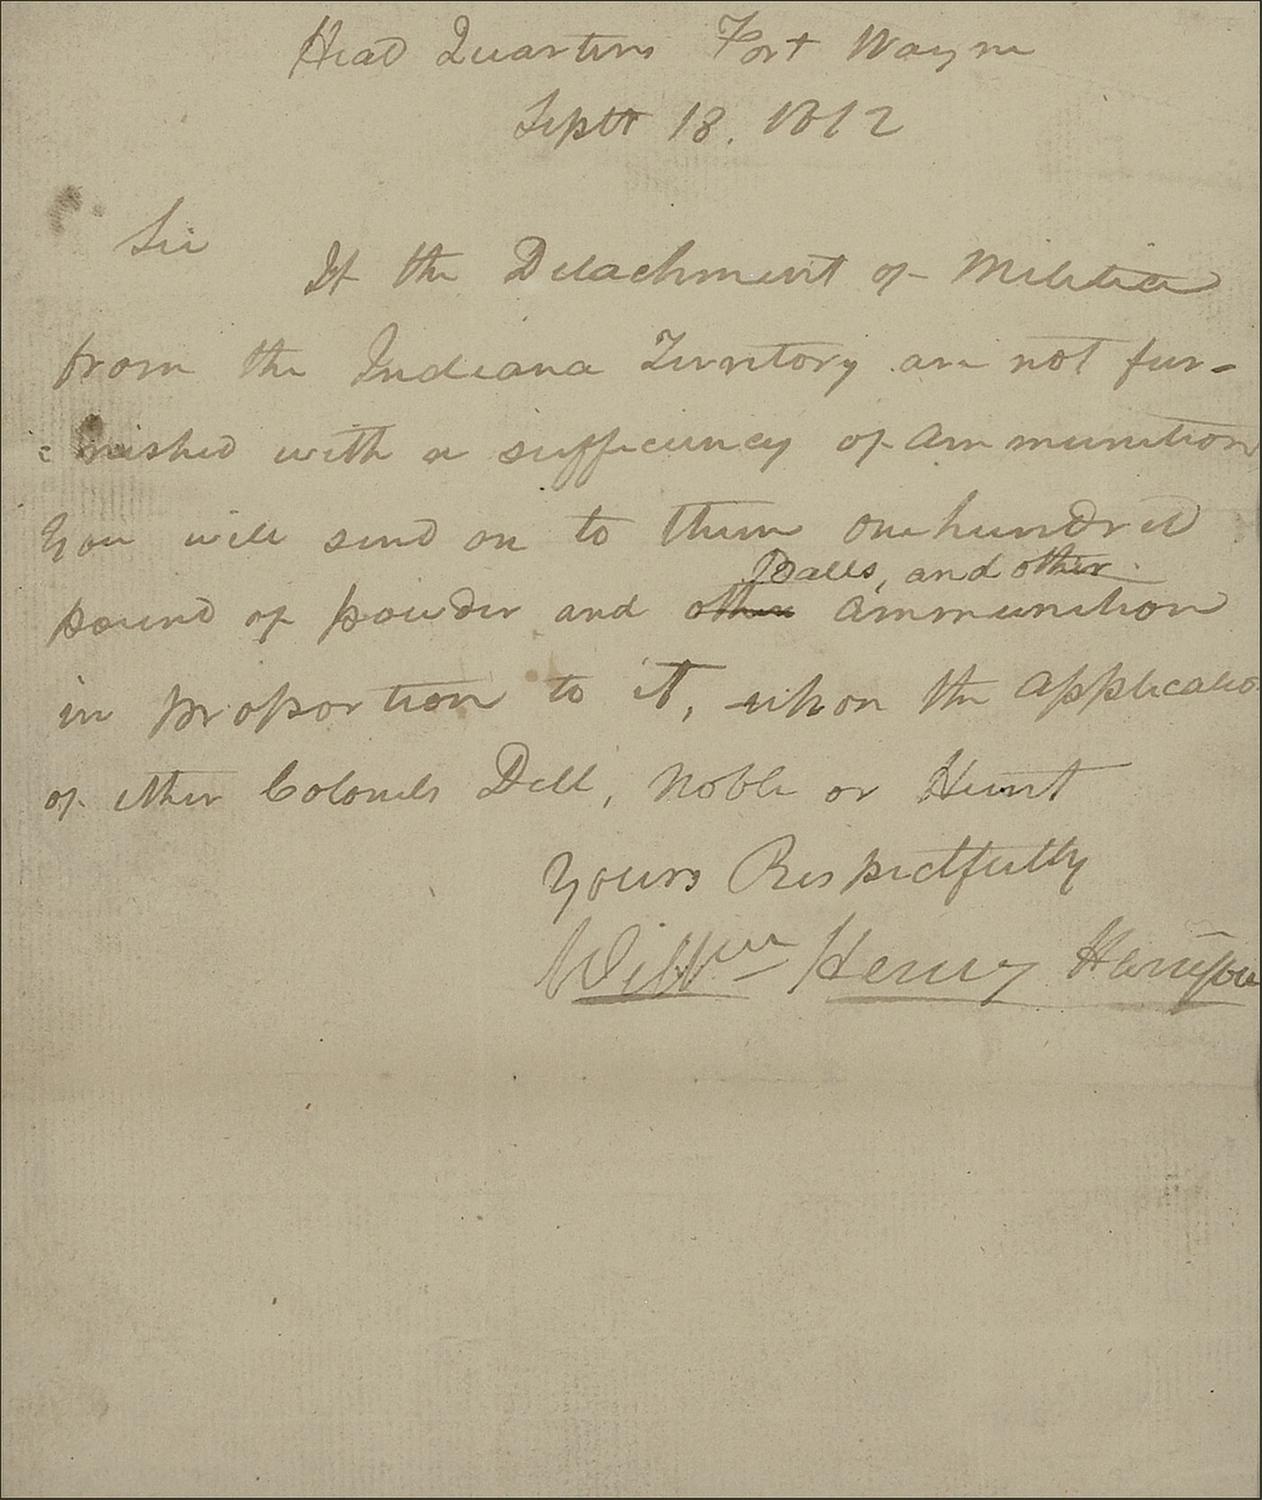 Head Quarters Fort Wayne
Septr 18. 1812
Sir
If the Detachment of Militia
from the Indiana Territory are not fur-
nished with a sufficiency of ammunition
you will send on to them one hundred
Balls, and other
pound of powder and other ammunition
in proportion to it, upon the applicatio
of either Colonels Dill, Noble or Hunt
Yours Respectfully
Willm Henry Harrison